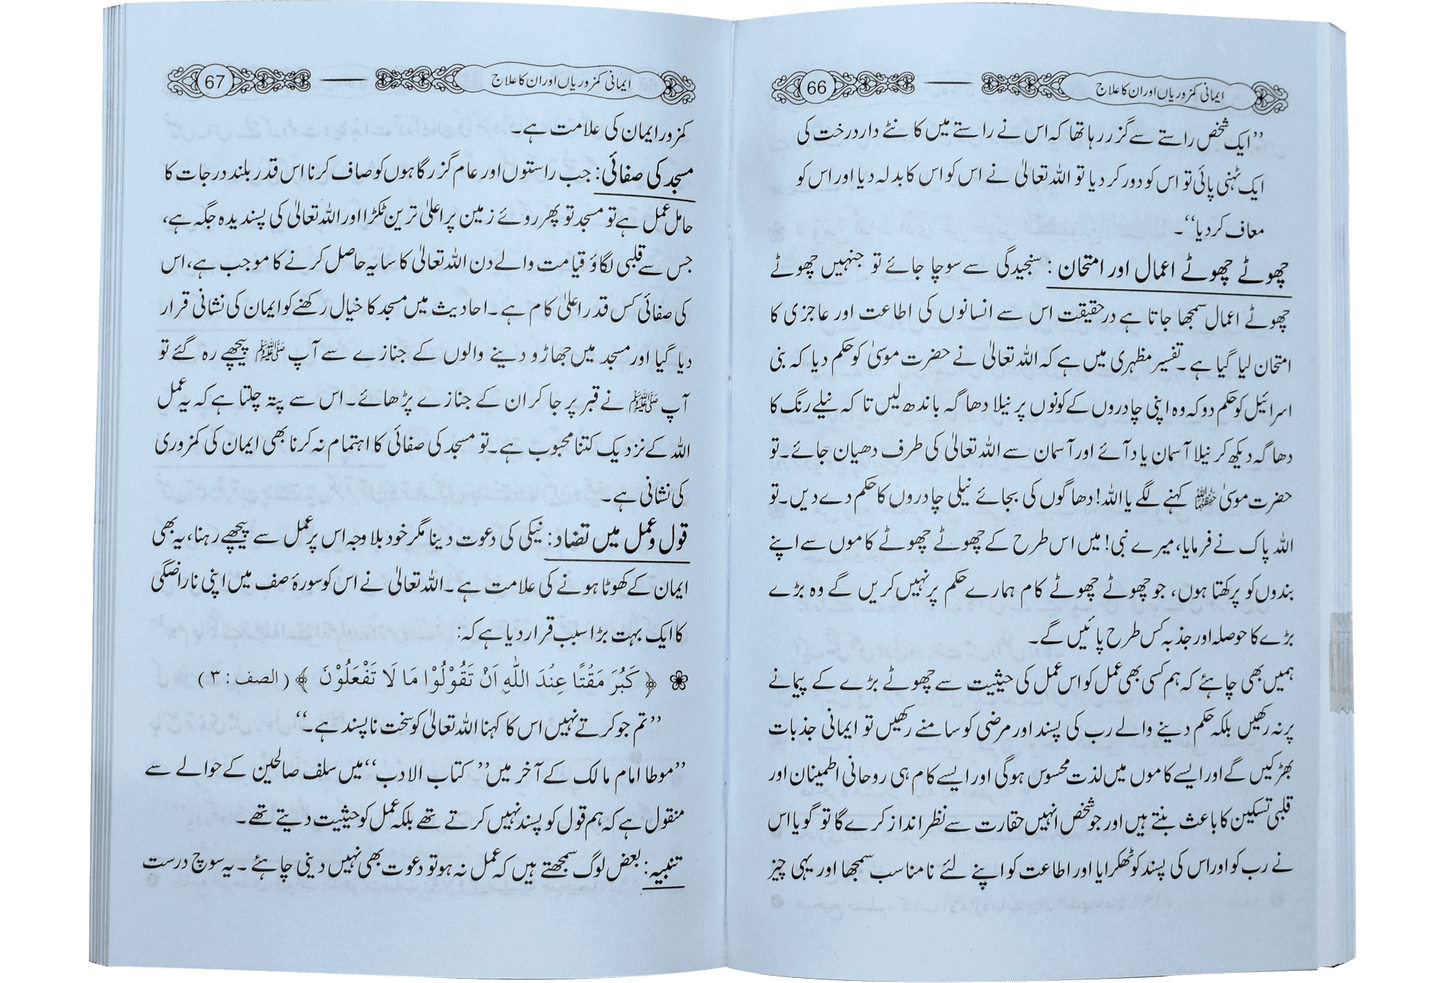 ایمانی کمزوریاں اور ان کا علاج
66
’’ایک شخص راستے سے گزر رہا تھا کہ اس نے راستے میں کانٹے دار درخت کی
ایک ٹہنی پائی تو اس کو دور کر دیا تو اللہ تعالیٰ نے اس کو اس کا بدلہ دیا اور اس کو
معاف کر دیا‘‘۔
چھوٹے چھوٹے اعمال اور امتحان: سنجیدگی سے سوچا جائے تو جنہیں چھوٹے
چھوٹے اعمال سمجھا جاتا ہے درحقیقت اس سے انسانوں کی اطاعت اور عاجزی کا
امتحان لیا گیا ہے۔ تفسیر مظہری میں ہے کہ اللہ تعالیٰ نے حضرت موسیٰ کو حکم دیا کہ بنی
اسرائیل کو حکم دو کہ وہ اپنی چادروں کے کونوں پر نیلا دھاگہ باندھ لیں تا کہ نیلے رنگ کا
دھاگہ دیکھ کر نیلا آسمان یاد آئے اور آسمان سے اللہ تعالیٰ کی طرف دھیان جائے۔ تو
حضرت موسیٰ علیہ السلام کہنے لگے یا اللہ! دھاگوں کی بجائے نیلی چادروں کا حکم دے دیں۔ تو
اللہ پاک نے فرمایا، میرے نبی! میں اس طرح کے چھوٹے چھوٹے کاموں سے اپنے
بندوں کو پرکھتا ہوں، جو چھوٹے چھوٹے کام ہمارے حکم پر نہیں کریں گے وہ بڑے
بڑے کا حوصلہ اور جذبہ کس طرح پائیں گے۔
ہمیں بھی چاہئے کہ ہم کسی بھی عمل کو اس عمل کی حیثیت سے چھوٹے بڑے کے پیمانے
پر نہ رکھیں بلکہ حکم دینے والے رب کی پسند اور مرضی کو سامنے رکھیں تو ایمانی جذبات
بھڑکیں گے اور ایسے کاموں میں لذت محسوس ہوگی اور ایسے کام ہی روحانی اطمینان اور
قلبی تسکین کا باعث بنتے ہیں اور جو شخص انہیں حقارت سے نظر انداز کرے گا تو گویا اس
نے رب کو اور اس کی پسند کو ٹھکرایا اور اطاعت کو اپنے لئے نامناسب سمجھا اور یہی چیز
ایمانی کمزوریاں اور ان کا علاج
67
کمزور ایمان کی علامت ہے۔
مسجد کی صفائی: جب راستوں اور عام گزرگاہوں کو صاف کرنا اس قدر بلند درجات کا
حامل عمل ہے تو مسجد تو پھر روئے زمین پر اعلیٰ ترین ٹکڑا اور اللہ تعالیٰ کی پسندیدہ جگہ ہے،
جس سے قلبی لگاؤ قیامت والے دن اللہ تعالیٰ کا سایہ حاصل کرنے کا موجب ہے، اس
کی صفائی کس قدر اعلیٰ کام ہے۔ احادیث میں مسجد کا خیال رکھنے کو ایمان کی نشانی قرار
دیا گیا اور مسجد میں جھاڑو دینے والوں کے جنازے سے آپ ﷺ پیچھے رہ گئے تو
آپ ﷺ نے قبر پر جا کر ان کے جنازے پڑھائے۔ اس سے پتہ چلتا ہے کہ یہ عمل
اللہ کے نزدیک کتنا محبوب ہے۔ تو مسجد کی صفائی کا اہتمام نہ کرنا بھی ایمان کی کمزوری
کی نشانی ہے۔
قول و عمل میں تضاد: نیکی کی دعوت دینا مگر خود بلا وجہ اس پر عمل سے پیچھے رہنا، یہ بھی
ایمان کے کھوٹا ہونے کی علامت ہے۔ اللہ تعالیٰ نے اس کو سورۂ صف میں اپنی ناراضگی
کا ایک بہت بڑا سبب قرار دیا ہے کہ:
❀ ﴿ كَبُرَ مَقْتًا عِنْدَ اللّٰهِ اَنْ تَقُوْلُوْا مَا لَا تَفْعَلُوْنَ ﴾ (الصف: ۳)
’’تم جو کرتے نہیں اس کا کہنا اللہ تعالیٰ کو سخت ناپسند ہے۔‘‘
’’موطا امام مالک کے آخر میں’’ کتاب الادب‘‘میں سلف صالحین کے حوالے سے
منقول ہے کہ ہم قول کو پسند نہیں کرتے تھے بلکہ عمل کو حیثیت دیتے تھے۔
تنبیہ: بعض لوگ سمجھتے ہیں کہ عمل نہ ہو تو دعوت بھی نہیں دینی چاہئے۔ یہ سوچ درست